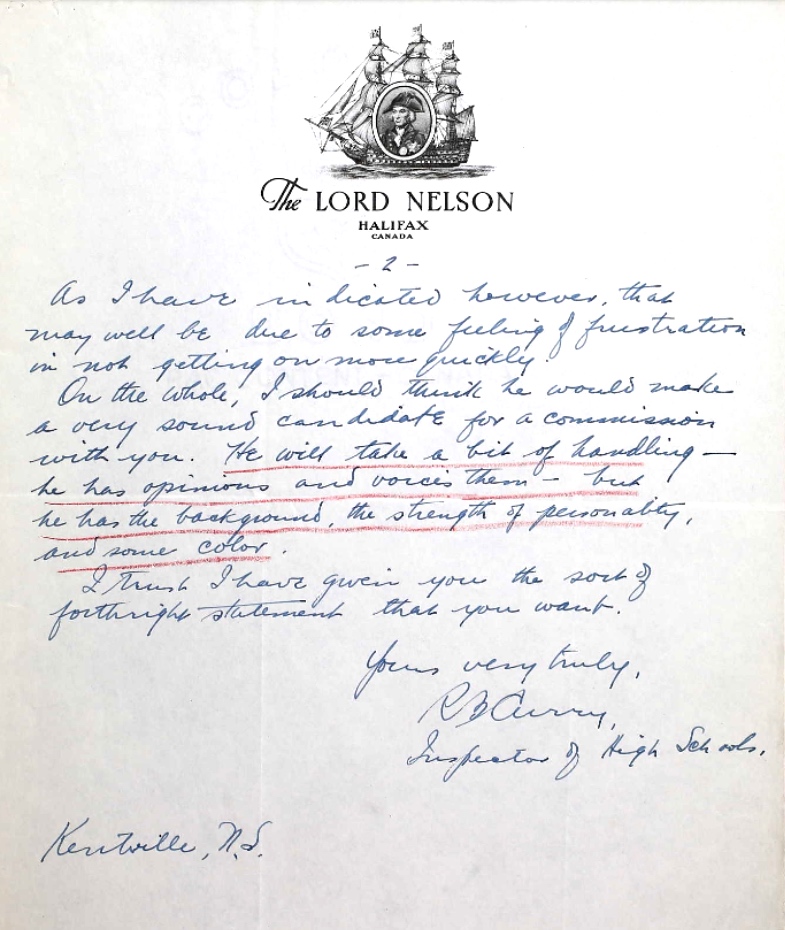 The LORD NELSON
HALIFAX
CANADA
- 2 -
As I have indicated however, that
may well be due to some feeling of frustration
in not getting on more quickly.
On the whole, I should think he would make
a very sound candidate for a commission
with you. He will take a bit of handling —
he has opinions and voices them — but
he has the background, the strength of personality,
and some color.
I trust I have given you the sort of
forthright statement that you want.
Yours very truly,
R B Curry,
Inspector of High Schools.
Kentville, N.S.